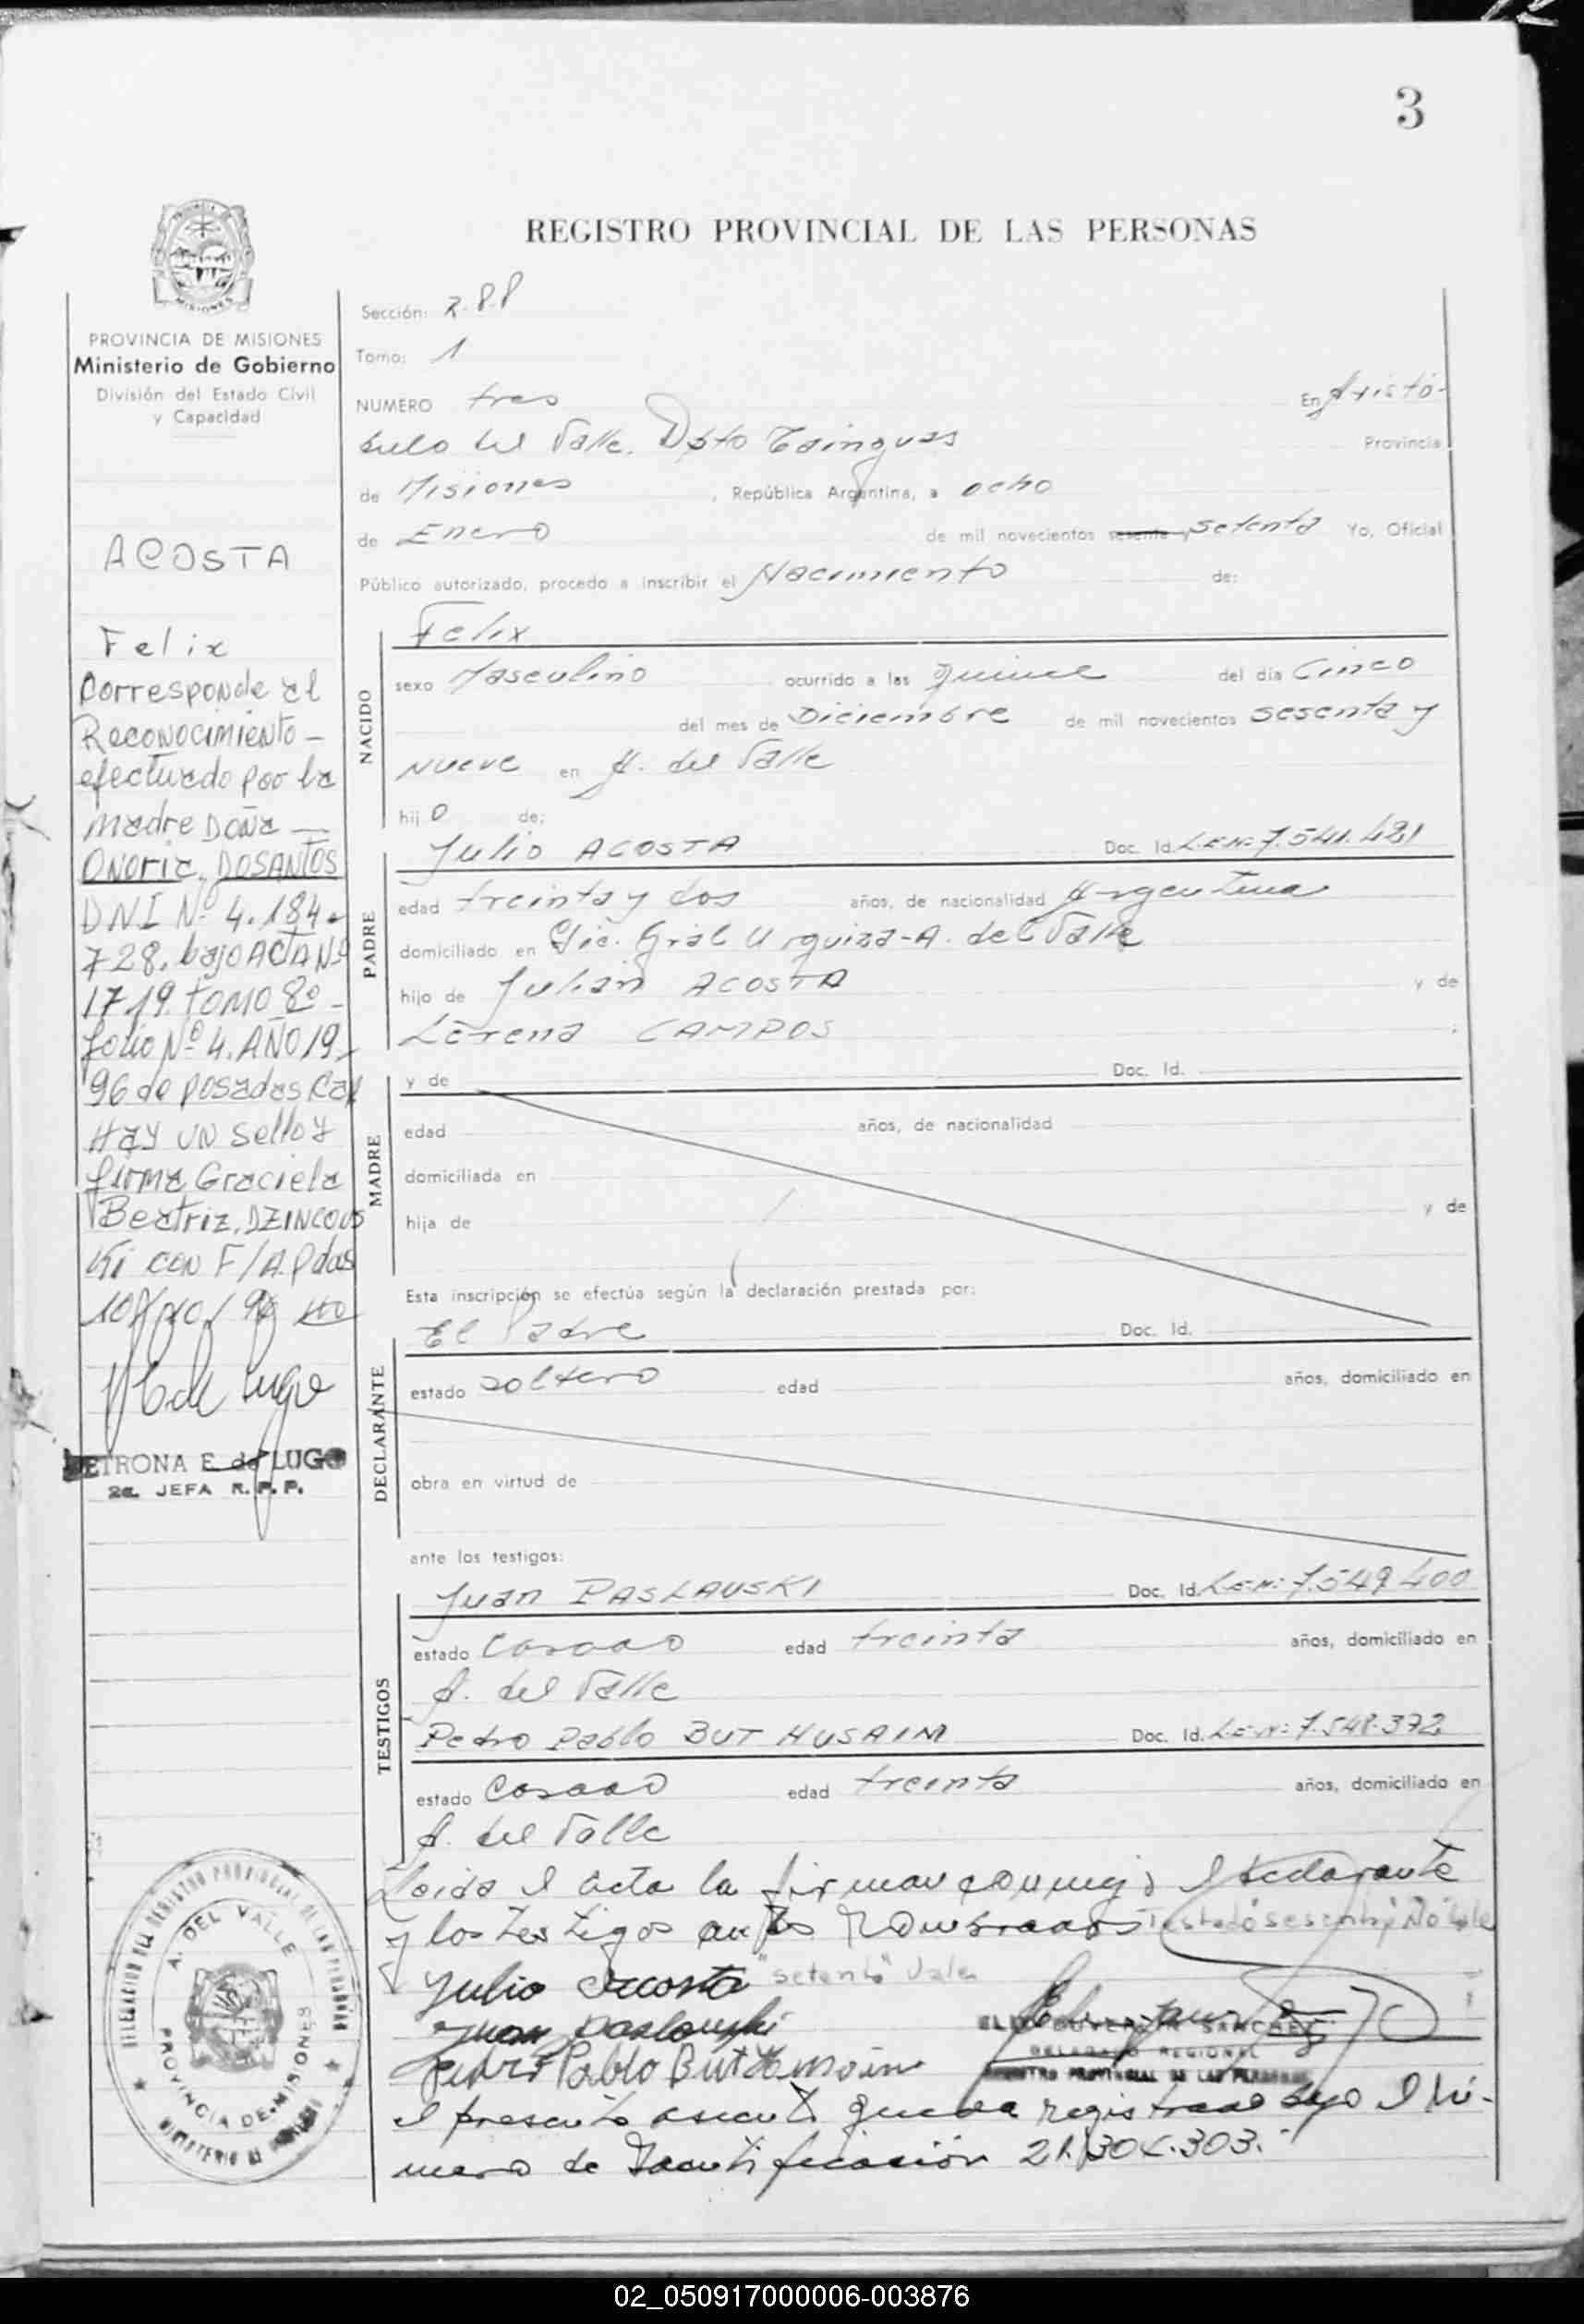 3
REGISTRO PROVINCIAL DE LAS PERSONAS
MISIONES
PROVINCIA DE MISIONES
Ministerio de Gobierno
División del Estado Civil
y Capacidad
ACOSTA
Felix
Corresponde al
Reconocimiento -
efectuado por la
Madre DOÑa -
ONoria. DOSANTOS
DNI Nº 4.184.
728. bajo ACTA Nº
1719. TOMO 8º -
folio Nº 4. AÑO 19-
96 de posadas
Hay un sello y
firma Graciela
Beatriz. DZINCOVS
Ki con F/A. Pdas
10/10/96
PETRONA E. de LUGO
2a. JEFA R. P. P.
Sección:
Tomo: 1
NUMERO tres En Aristó-
bulo del Valle. Dpto Cainguas Provincia
de Misiones, República Argentina, a ocho
de Enero de mil novecientos sesenta setenta Yo, Oficial
Público autorizado, procedo a inscribir el Nacimiento de:
NACIDO
Felix
sexo Masculino ocurrido a las quince del día Cinco
del mes de Diciembre de mil novecientos sesenta y
nueve en A. del Valle
hijo de:
PADRE
Julio ACOSTA Doc. Id. L.E.N: 7.541.421
edad treinta y dos años, de nacionalidad Argentina
domiciliado en Gral Urquiza - A. del Valle
hijo de Julian ACOSTA y de
Lerena CAMPOS
MADRE
y de Doc. Id.
edad años, de nacionalidad
domiciliada en
hija de y de
Esta inscripción se efectúa según la declaración prestada por:
DECLARANTE
El Padre Doc. Id.
estado soltero edad años, domiciliado en
obra en virtud de
ante los testigos:
TESTIGOS
Juan PASLAUSKI Doc. Id. L.E.N: 7.549.400
estado Casado edad treinta años, domiciliado en
A. del Valle
Pedro Pablo BUT HUSAIM Doc. Id. L.E.N: 7.548.372
estado Casado edad treinta años, domiciliado en
A. del Valle
Leida el acta la firman conmigo el declarante
y los testigos antes nombrados Testado "sesenta" No vale
"setenta" Vale
Julio Acosta
Juan Paslauski
Pedro Pablo But
SANCHEZ
DELEGADO REGIONAL
REGISTRO PROVINCIAL DE LAS PERSONAS
el presente asiento queda registrado bajo el Nú-
mero de Identificación 21.304.303.-
DELEGACION DEL REGISTRO PROVINCIAL DE LAS PERSONAS
A. DEL VALLE
PROVINCIA DE MISIONES
MINISTERIO DE GOBIERNO
02_050917000006-003876